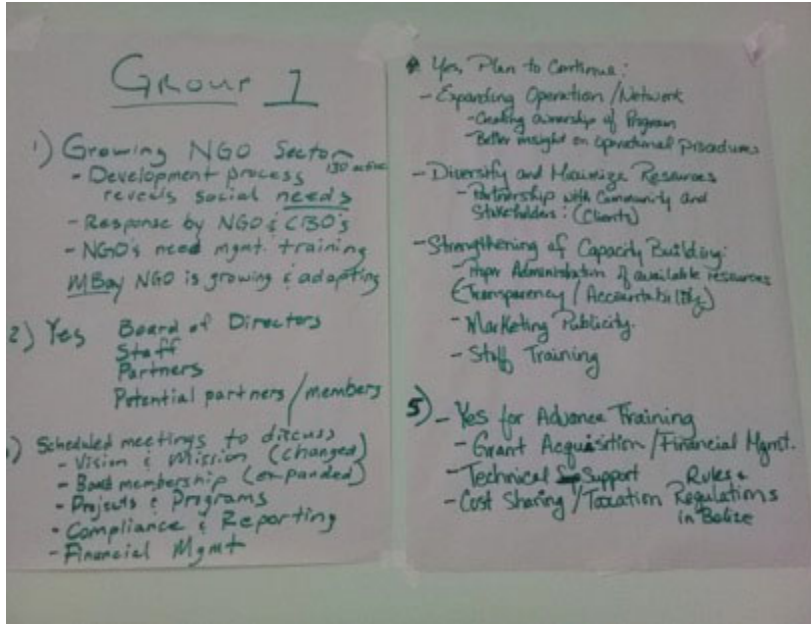 Group 1
1) Growing NGO Sector 130 active
- Development process
reveals social needs
- Response by NGO & CBO's
- NGO's need mgmt. training
MBay NGO is growing & adapting
2) Yes Board of Directors
Staff
Partners
Potential partners / members
) Scheduled meetings to discuss
- Vision & Mission (changed)
- Board membership (expanded)
- Projects & Programs
- Compliance & Reporting
- Financial Mgmt
Yes, Plan to Continue:
- Expanding Operation / Network
- Creating ownership of Program
- Better insight on operational procedures
- Diversify and Maximize Resources
- Partnership with Community and
Stakeholders: (Clients)
- Strengthening of Capacity Building:
- Proper Administration of available resources
(Transparency / Accountability)
- Marketing Publicity.
- Staff Training
5) - Yes for Advance Training
- Grant Acquisition / Financial Mgmt.
- Technical Support
- Cost Sharing / Taxation Rules & Regulations
in Belize